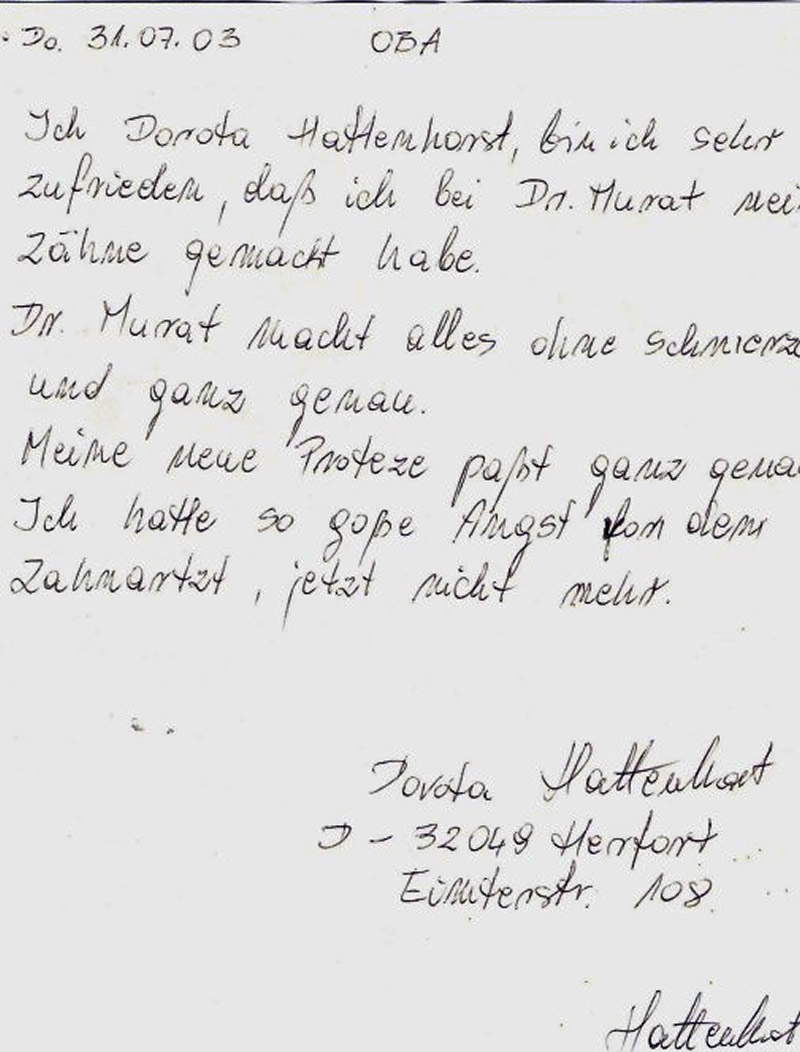 Do. 31.07.03 OBA
Ich Dorota Hattenhorst, bin ich sehr
zufrieden, daß ich bei Dr. Murat mei
Zähne gemacht habe.
Dr. Murat macht alles ohne schmerz
und ganz genau.
Meine neue Proteze paßt ganz gena
Ich hatte so goße Angst fon dem
Zahnartzt, jetzt nicht mehr.
Dorota Hattenhorst
D - 32049 Herfort
108